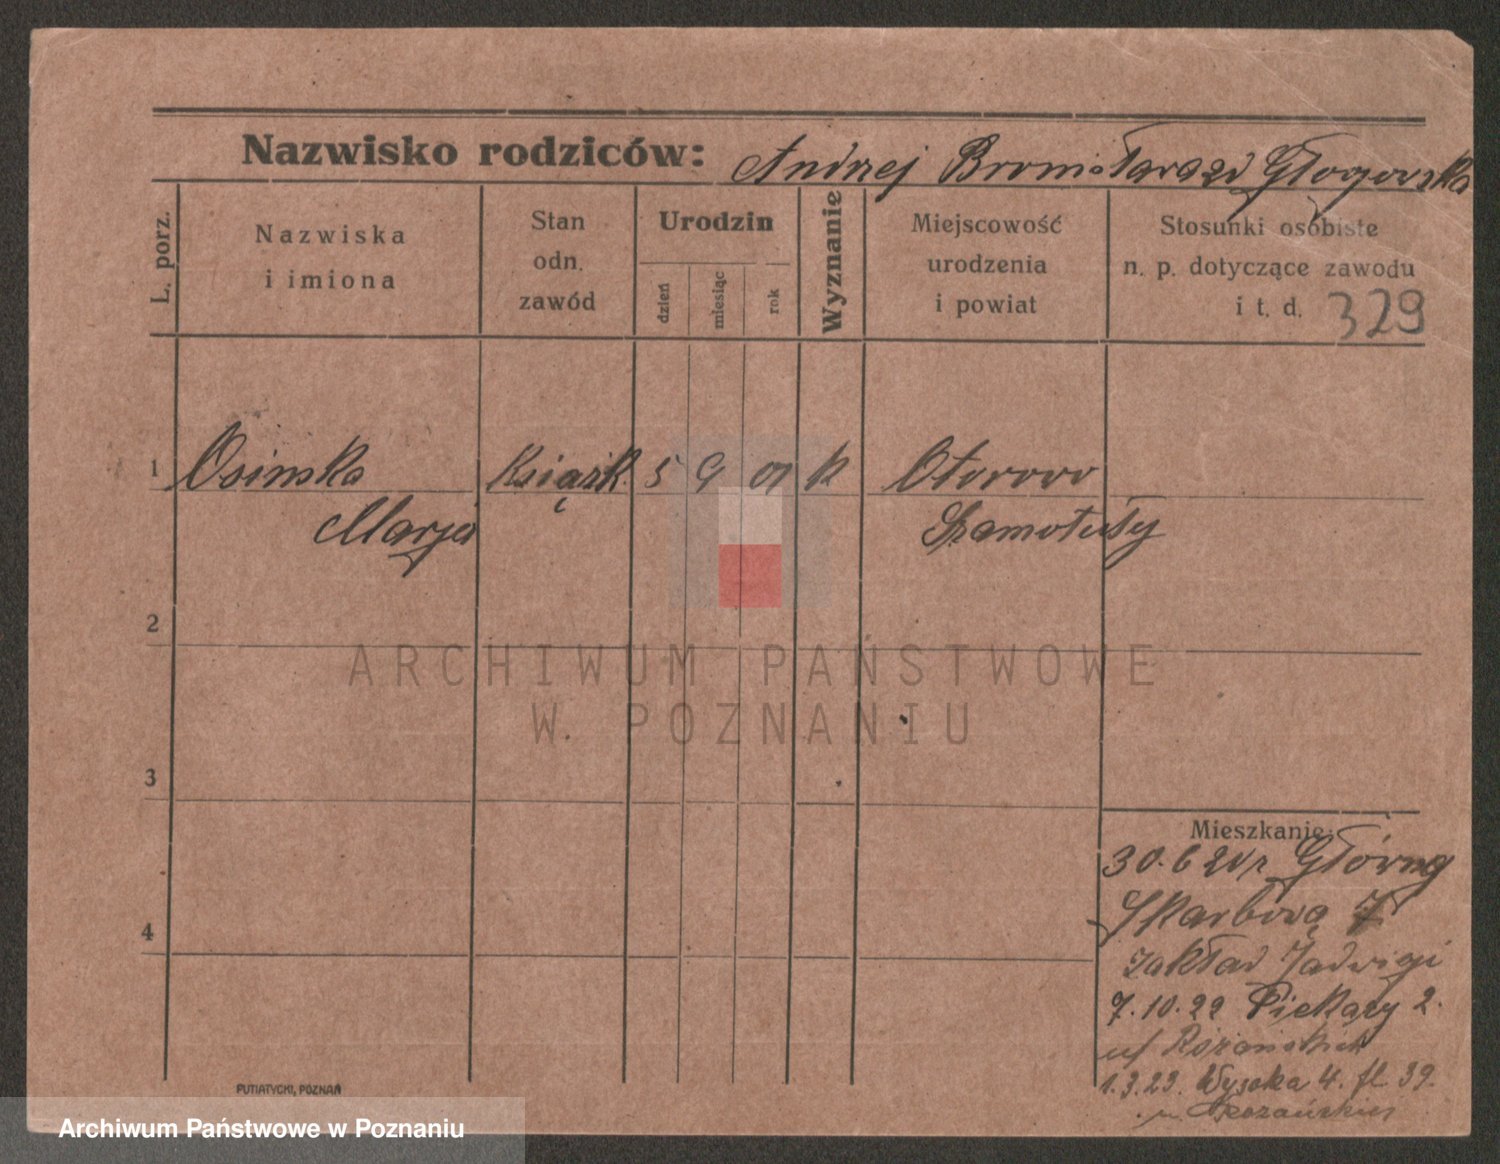 Nazwisko rodziców: Andrzej Bronisława zd Głogowska
L. porz.
Nazwiska
i imiona
Stan
odn.
zawód
Urodzin
dzień
miesiąc
rok
Wyznanie
Miejscowość
urodzenia
i powiat
Stosunki osobiste
n. p. dotyczące zawodu
i t. d. 329
1 Osinska Książk. 5 9 01 k Otorowo
Marja Szamotuły
2
3
4
Mieszkanie:
30.6 21 r. Główną
Skarbową 7
zakład Jadwigi
7.10.22 Piekary 2.
1.3.23. Wysoka 4. fl. 39.
PUTIATYCKI, POZNAŃ
ARCHIWUM PAŃSTWOWE
W POZNANIU
Archiwum Państwowe w Poznaniu